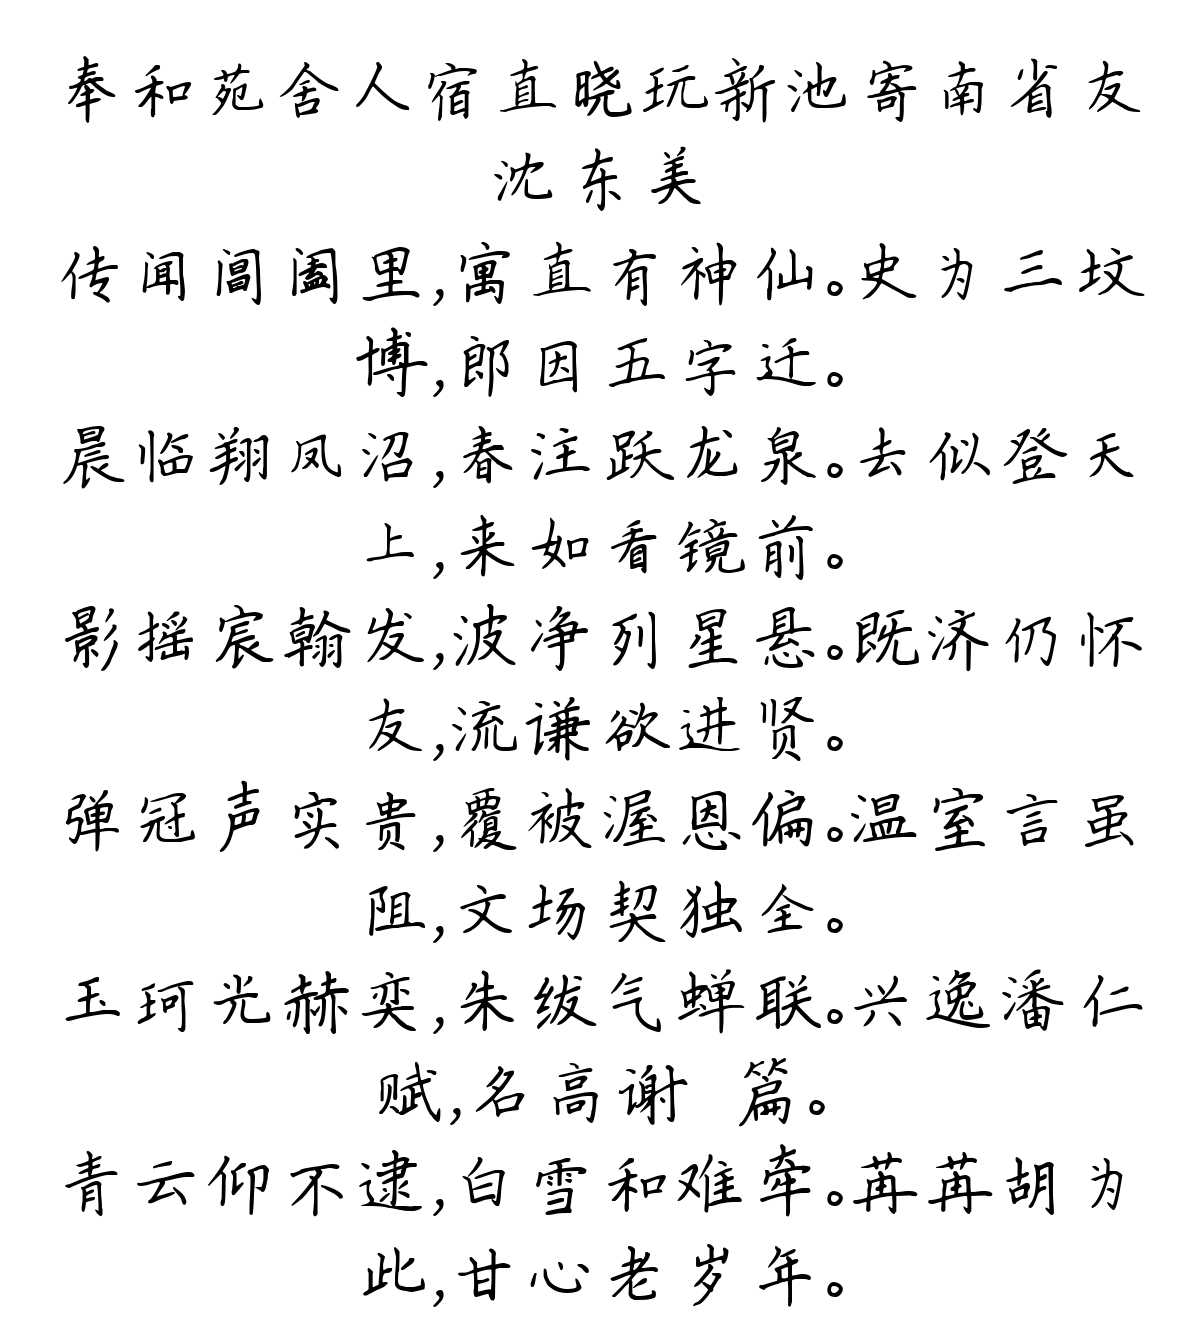 奉和苑舍人宿直晓玩新池寄南省友
沈东美
传闻阊阖里,寓直有神仙。史为三坟
博,郎因五字迁。
晨临翔凤沼,春注跃龙泉。去似登天
上,来如看镜前。
影摇宸翰发,波净列星悬。既济仍怀
友,流谦欲进贤。
弹冠声实贵,覆被渥恩偏。温室言虽
阻,文场契独全。
玉珂光赫奕,朱绂气蝉联。兴逸潘仁
赋,名高谢 篇。
青云仰不逮,白雪和难牵。苒苒胡为
此,甘心老岁年。